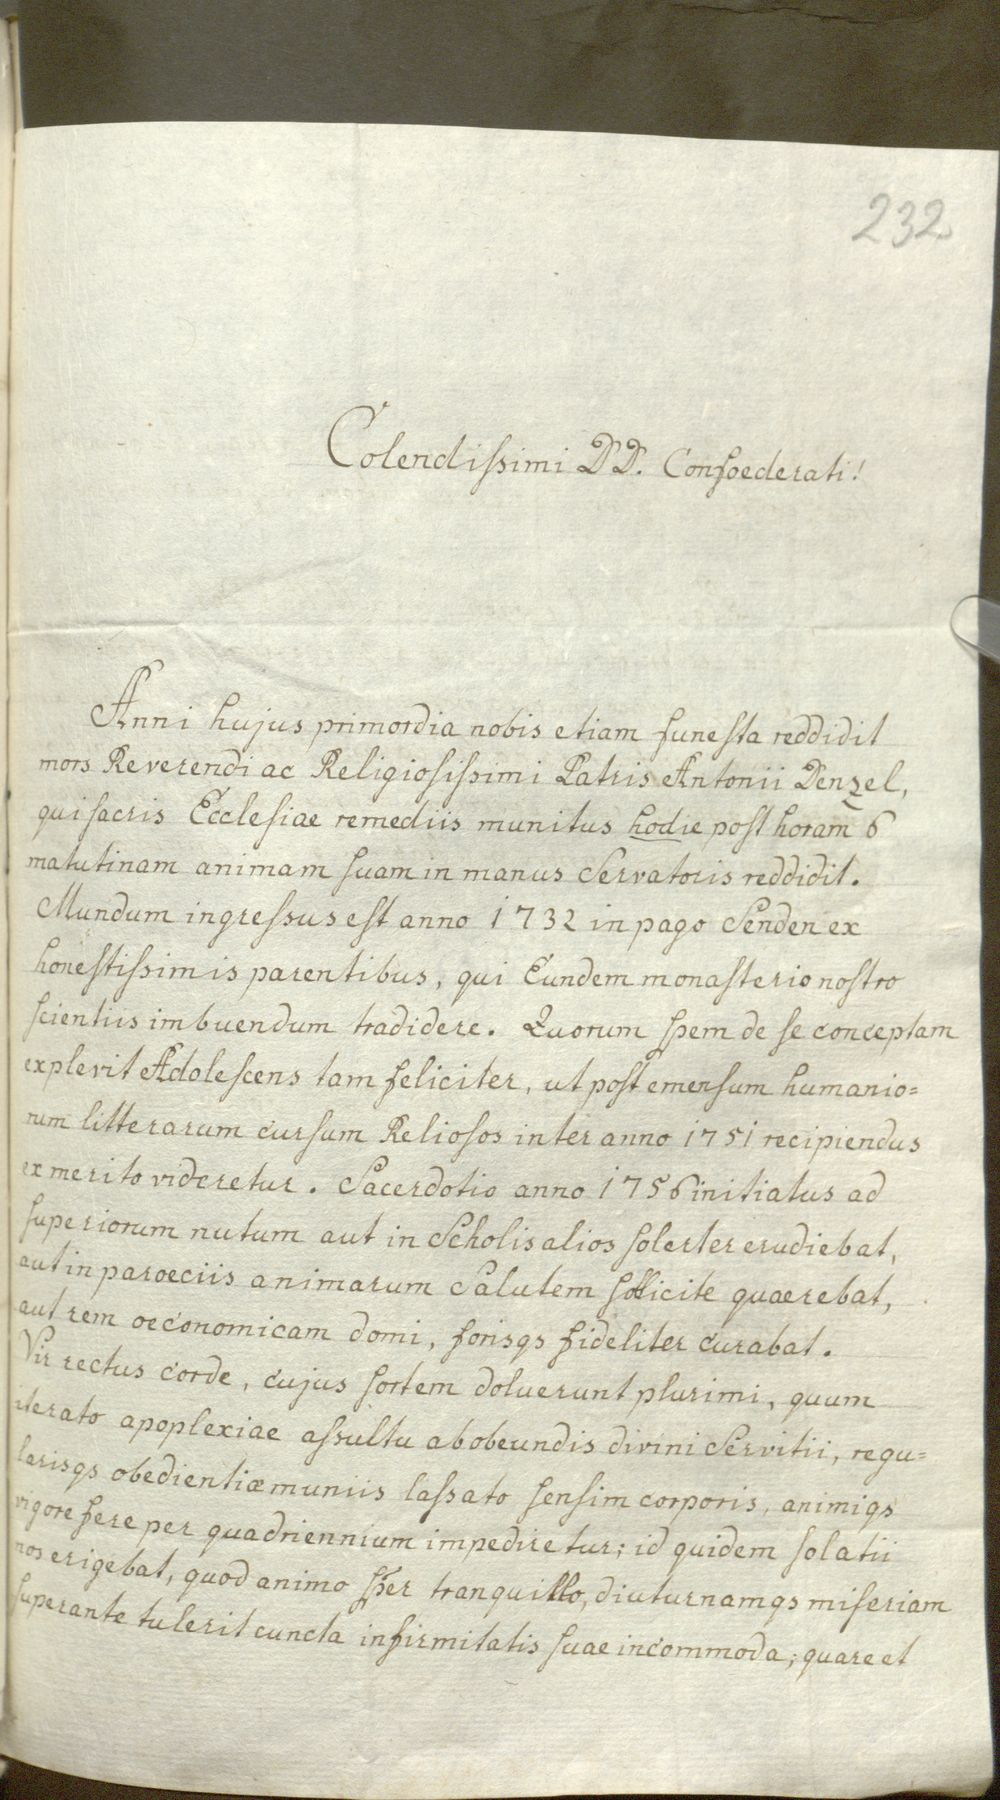 232
Colendissimi DD. Confoederati!
Anni hujus primordia nobis etiam funesta reddidit
mors Reverendi ac Religiosissimi Patris Antonii Denzel,
qui sacris Ecclesiae remediis munitus hodie post horam 6
matutinam animam suam in manus Servatoris reddidit.
Mundum ingressus est anno 1732 in pago Senden ex
honestissimis parentibus, qui Eundem monasterio nostro
scientiis imbuendum tradidere. Quorum spem de se conceptam
explevit Adolescens tam feliciter, ut post emensum humanio=
rum litterarum cursum Reliosos inter anno 1751 recipiendus
ex merito videretur. Sacerdotio anno 1756 initiatus ad
superiorum nutum aut in Scholis alios solerter erudiebat,
aut in paroeciis animarum Salutem sollicite quaerebat,
aut rem oeconomicam domi, forisqs fideliter curabat.
Vir rectus corde, cujus sortem doluerunt plurimi, quum
iterato apoplexiae assultu ab obeundis divini Servitii, regu=
larisqs obedientiæ muniis lassato sensim corporis, animiqs
vigore fere per quadriennium impediretur; id quidem solatii
nos erigebat, quod animo sper tranquillo, diuturnamqs miseriam
superante tulerit cuncta infirmitatis suae incommoda; quare et